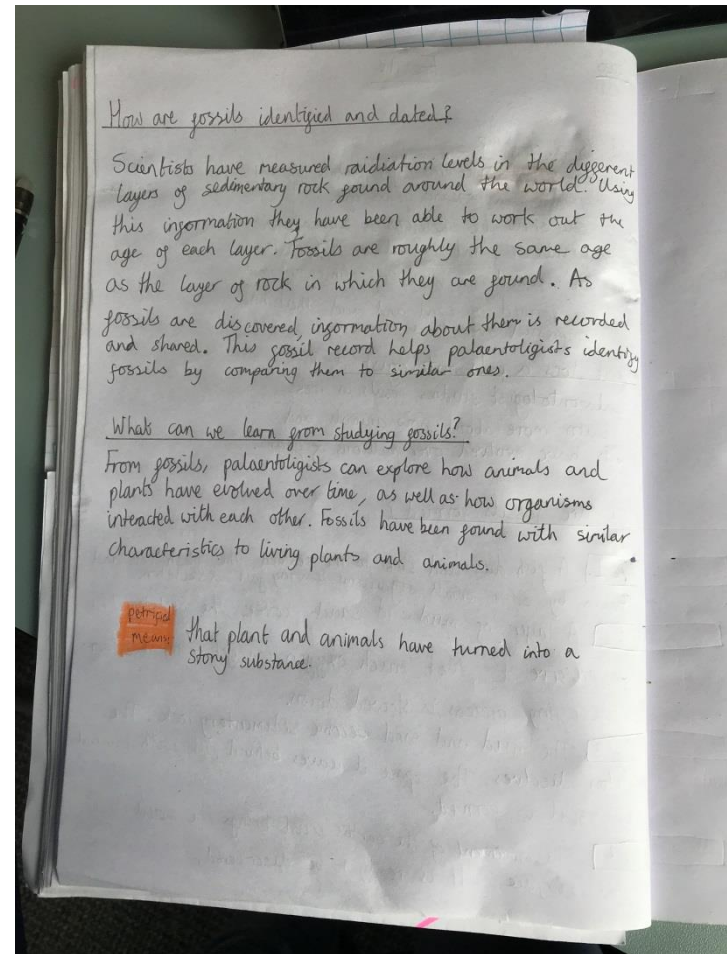 How are fossils identified and dated?
Scientists have measured raidiation levels in the different
layers of sedimentary rock found around the world. Using
this information they have been able to work out the
age of each layer. Fossils are roughly the same age
as the layer of rock in which they are found. As
fossils are discovered, information about them is recorded
and shared. This fossil record helps palaentoligists identify
fossils by comparing them to similar ones.
What can we learn from studying fossils?
From fossils, palaentoligists can explore how animals and
plants have evolved over time, as well as how organisms
interacted with each other. Fossils have been found with similar
characteristics to living plants and animals.
petrified
means
that plant and animals have turned into a
stony substance.